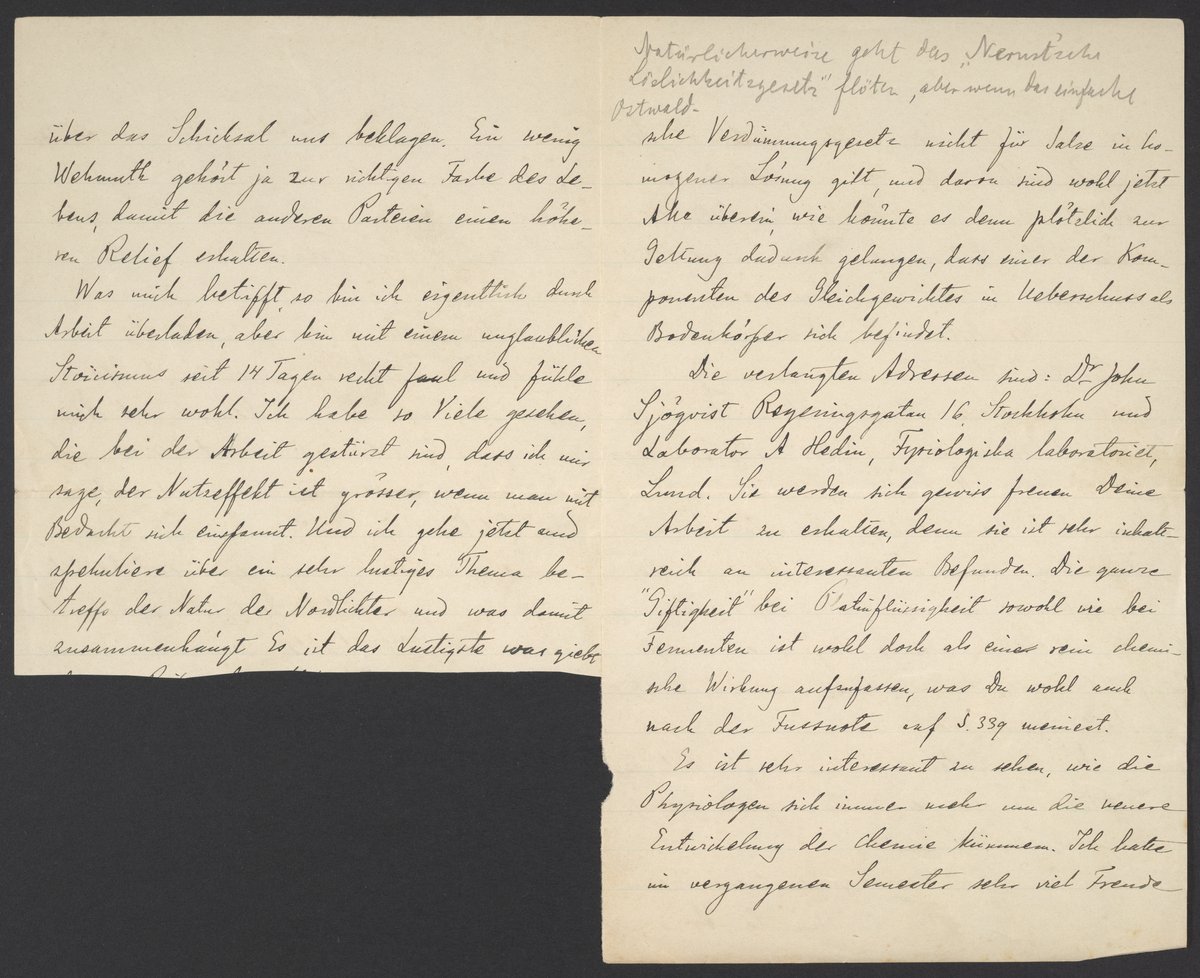 über das Schicksal uns beklagen. Ein wenig
Wehmuth gehört ja zur richtigen Farbe des Le-
bens, damit die anderen Parteien einen höhe-
ren Relief erhalten.
Was mich betifft, so bin ich eigentlich durch
Arbeit überladen, aber bin mit einem unglaublichen
Stoicismus seit 14 Tagen recht faul und fühle
mich sehr wohl. Ich habe so Viele gesehen,
die bei der Arbeit gestürzt sind, dass ich mir
sage, der Nutzeffekt ist grösser, wenn man mit
Bedacht sich einspannt. Und ich gehe jetzt und
spekuliere über ein sehr lustiges Thema be-
treffs der Natur der Nordlichter und was damit
zusammenhängt Es ist das Lustigste was giebt
Natürlicherweise geht das „Nernst'sche
Löslichkeitsgesetz" flöten, aber wenn das einfache
Ostwald-
sche Verdünnungsgesetz nicht für Salze in ho-
mogener Lösung gilt, und daran sind wohl jetzt
Alle überein, wie könnte es denn plötzlich zur
Geltung dadurch gelangen, dass einer der Kom-
ponenten des Gleichgewichtes in Ueberschuss als
Bodenkörper sich befindet.
Die verlangten Adressen sind: Dr John
Sjöqvist Regeringsgatan 16, Stockholm und
Laborator A Hedin, Fysiologiska laboratoriet,
Lund. Sie werden sich gewiss freuen Deine
Arbeit zu erhalten, denn sie ist sehr inhalt-
reich an interessanten Befunden. Die ganze
"Giftigkeit" bei Platinflüssigkeit sowohl wie bei
Fermenten ist wohl doch als eine rein chemi-
sche Wirkung aufzufassen, was Du wohl auch
nach der Fussnote auf S. 339 meinest.
Es ist sehr interessant zu sehen, wie die
Physiologen sich immer mehr um die neuere
Entwickelung der Chemie kümmern. Ich hatte
im vergangenen Semester sehr viel Freude